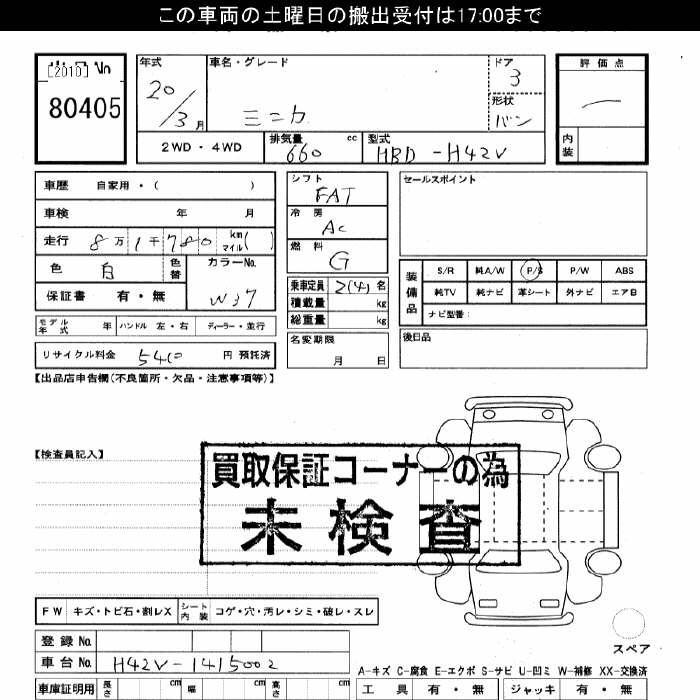 この車両の土曜日の搬出受付は17:00まで
[2010]
80405
年式 20/3月
車名・グレード ミニカ
ドア 3
形状 バン
評価点
内装
2WD・4WD
排気量 660 cc
型式 HBD-H42V
車歴 自家用・( )
車検 年 月
走行 8万1千780 km マイル( )
色 白 色替
カラーNo. W37
保証書 有・無
モデル年式 年 ハンドル 左・右 ディーラー・並行
リサイクル料金 5410 円 預託済
シフト FAT
冷房 AC
燃料 G
乗車定員 2(4) 名
積載量 kg
総重量 kg
名変期限 月 日
セールスポイント
装備品
S/R 純A/W P/S P/W ABS
純TV 純ナビ 革シート 外ナビ エアB
ナビ型番:
後日品
【出品店申告欄(不良箇所・欠品・注意事項等)】
【検査員記入】
買取保証コーナーの為
未検査
FW キズ・トビ石・割レX シート内装 コゲ・穴・汚レ・シミ・破レ・スレ
登録No.
車台No. H42V-1415002
車庫証明用 長さ cm 幅 cm 高さ cm
スペア
A-キズ C-腐食 E-エクボ S-サビ U-凹ミ W-補修 XX-交換済
工具 有・無 ジャッキ 有・無